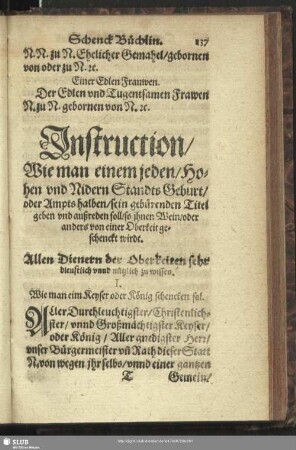 Schenck Büchlin. 137
N.N. zu N. Ehelicher Gemahel/gebornen
von oder zu N. ꝛc.
Einer Edlen Frauwen.
Der Edlen vnd Tugentsamen Frawen
N. zu N. gebornen von N. ꝛc.
Instruction/
Wie man einem jeden/Ho-
hen vnd Nidern Standts Geburt/
oder Ampts halben/sein gebürenden Titel
geben vnd außreden soll/so jhnen Wein/oder
anders von einer Oberkeit ge-
schenckt wirdt.
Allen Dienern der Oberkeiten sehr
dienstlich vnnd nützlich zu wissen.
I.
Wie man eim Keyser oder König schencken sol.
Aller Durchleuchtigster/Christenlich-
ster/vnnd Großmächtigster Keyser/
oder König/Aller gnedigster Herr/
vnser Bürgermeister vñ Rath dieser Statt
N. von wegen jhr selbs/vnnd einer gantzen
T Gemein/
SLUB